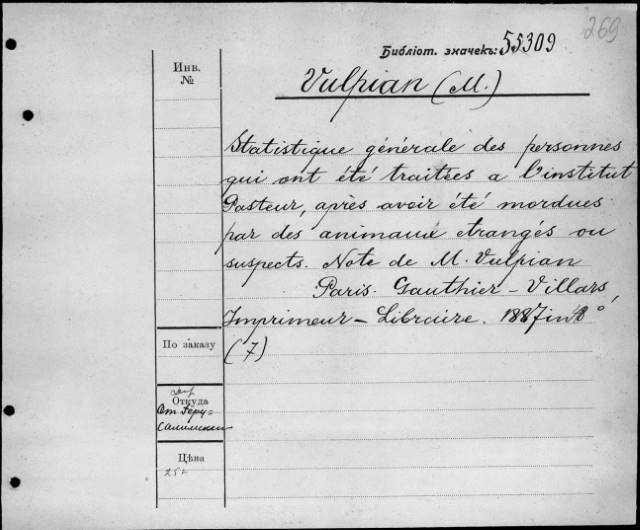 269
Библіот. значекъ: 55309
Инв.
№
Vulpian (M.)
Statistique générale des personnes
qui ont été traitées a l'institut
Pasteur, après avoir été mordues
par des animaux etrangés ou
suspects. Note de M. Vulpian
Paris. Gauthier-Villars,
Imprimeur-Libraire. 1887 in 8°
(7)
По заказу
Откуда
От Iеру=
салимски
Цѣна
25к